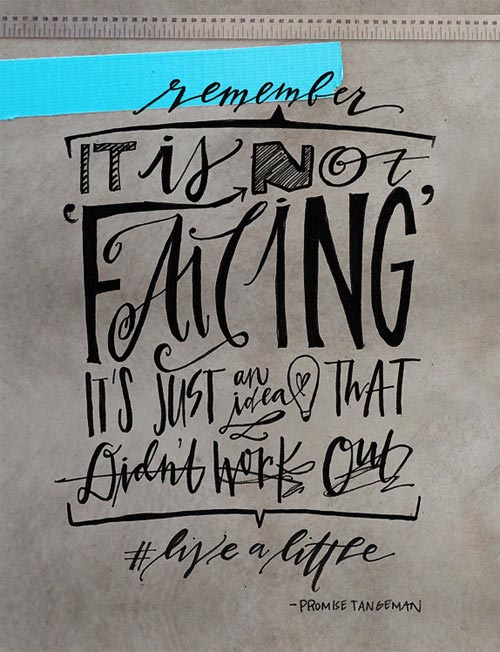 remember
IT is NOT
'FAILING'
IT'S JUST an idea THAT
Didn't work out
#live a little
-PROMISE TANGEMAN